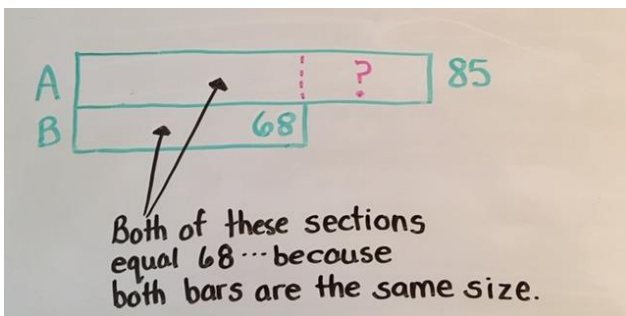 A ? 85
B 68
Both of these sections
equal 68...because
both bars are the same size.